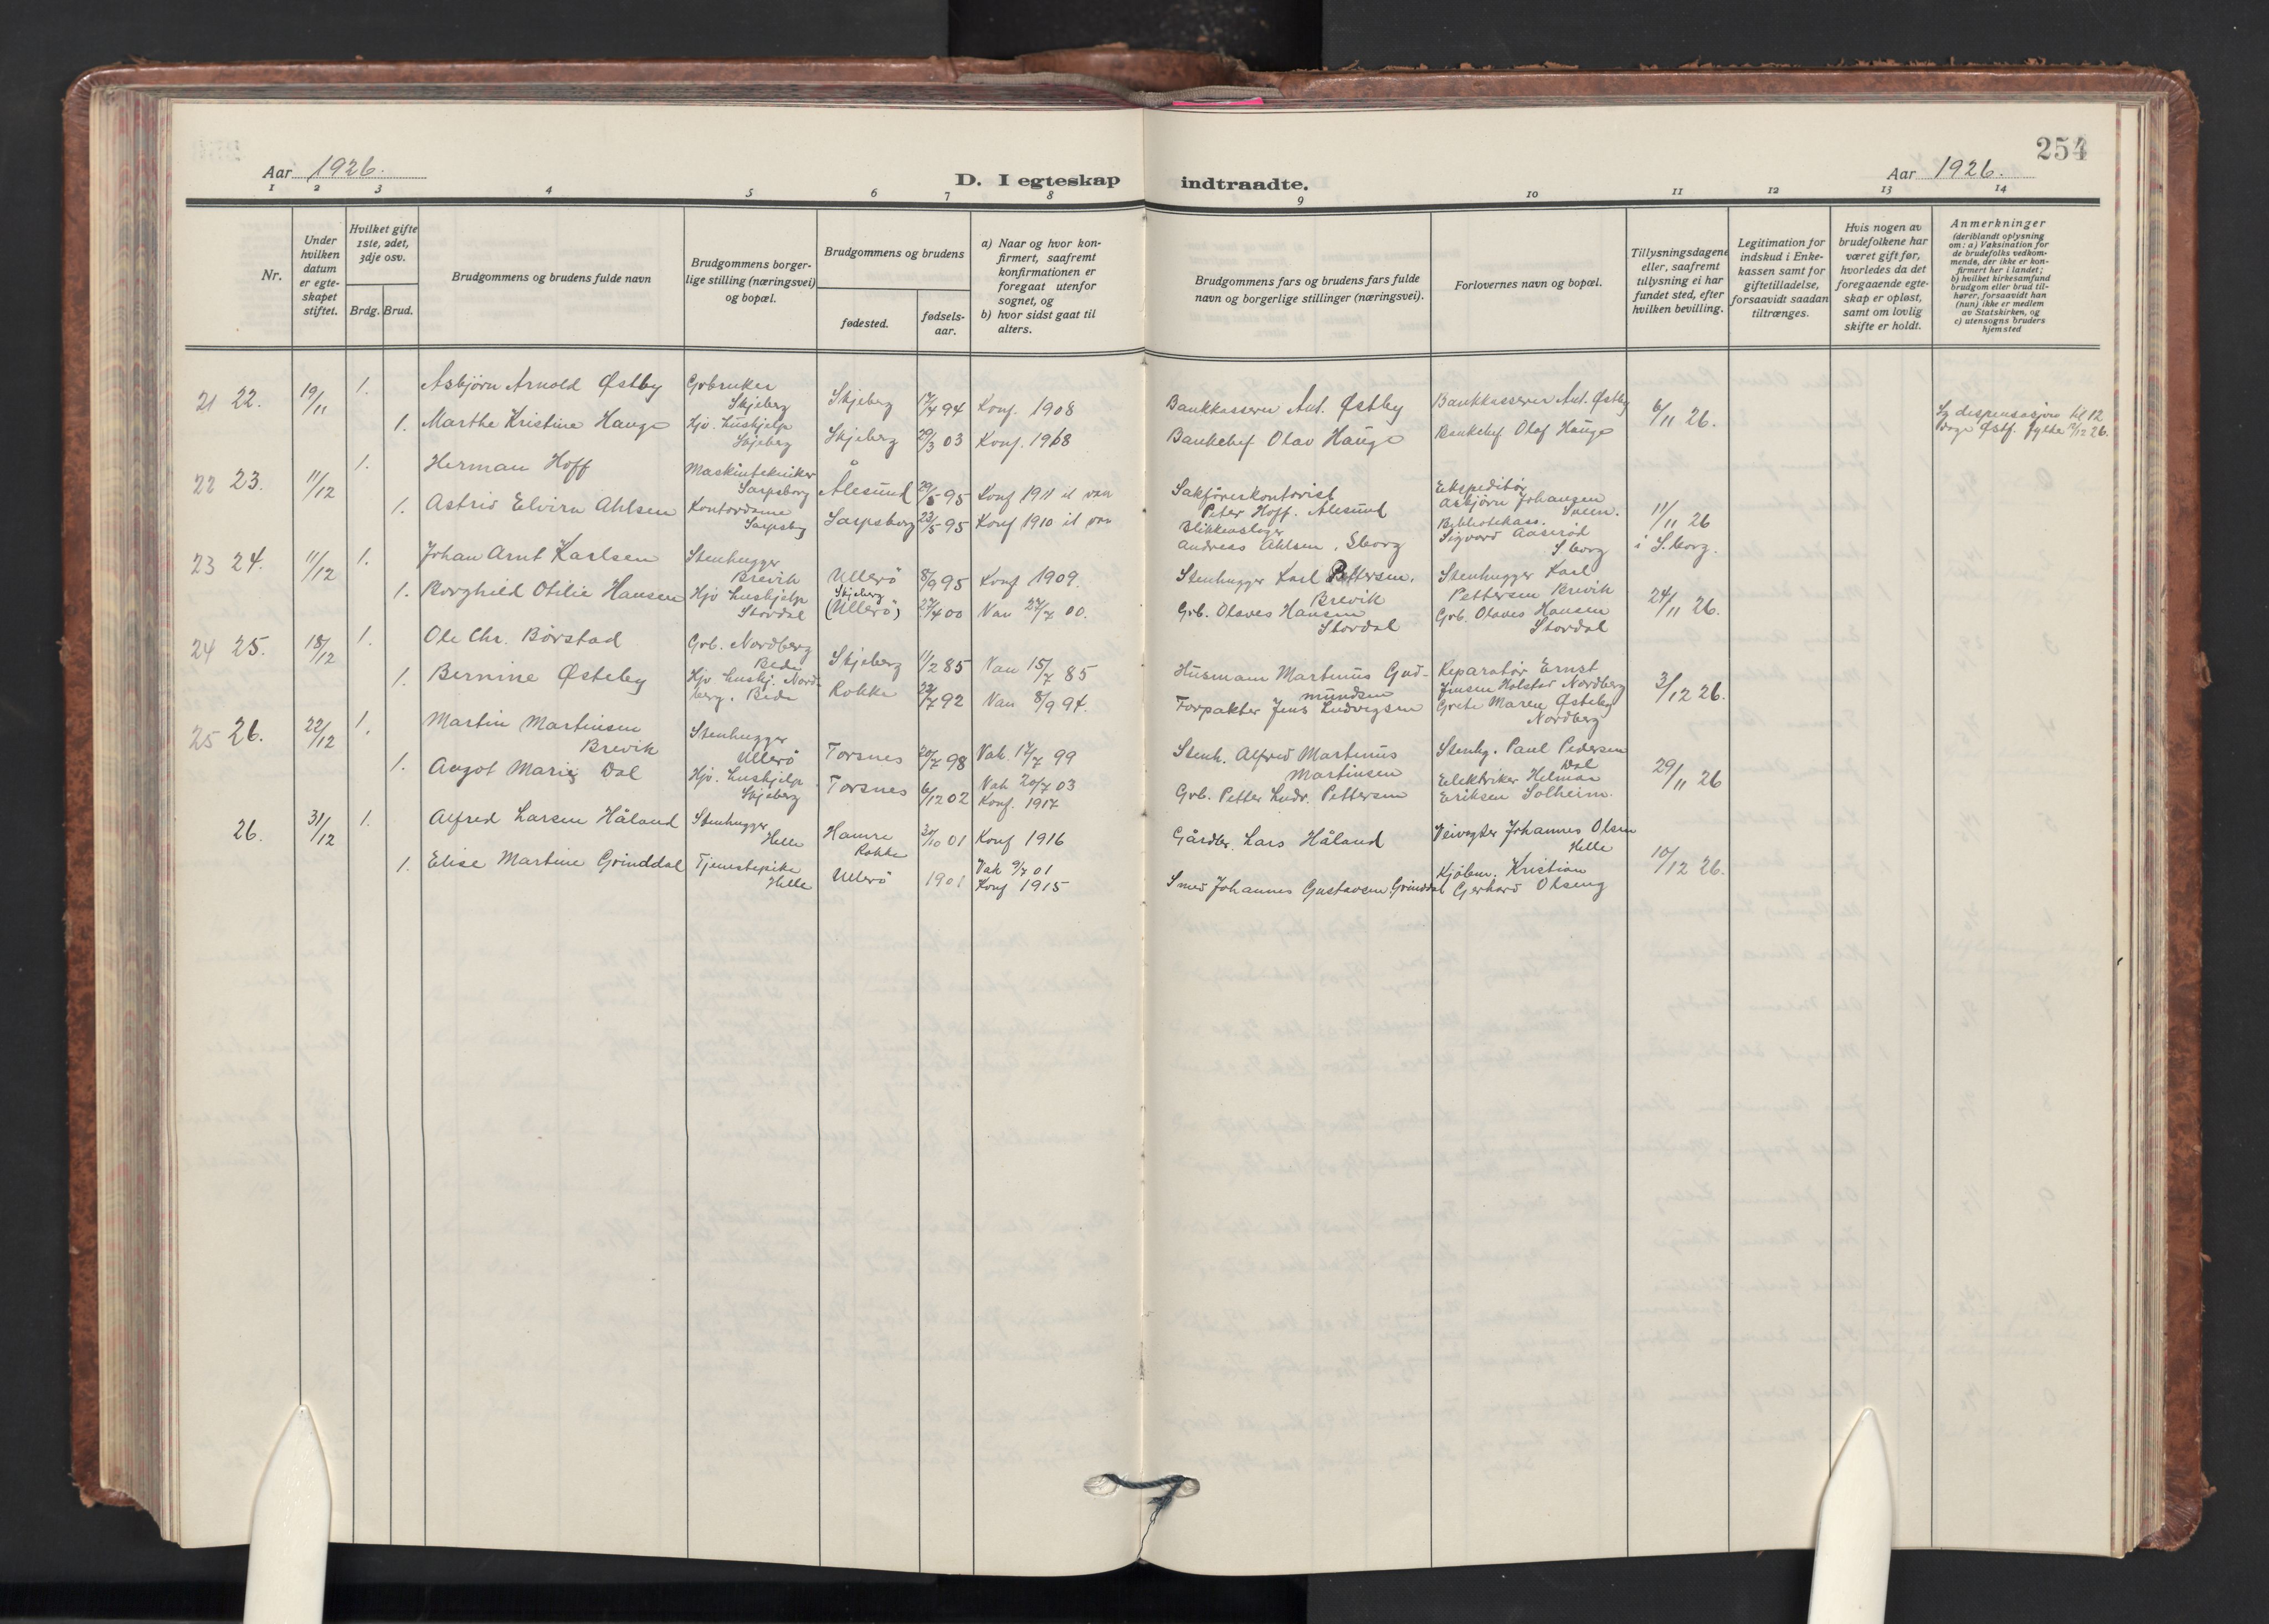 254
Aar 1926.
D. I egteskap indtraadte.
Aar 1926.
1 2 3 4 5 6 7 8 9 10 11 12 13 14
Nr.
Under hvilken datum er egte-skapet stiftet.
Hvilket gifte 1ste, 2det, 3dje osv.
Brdg. Brud.
Brudgommens og brudens fulde navn
Brudgommens borger-lige stilling (næringsvei) og bopæl.
Brudgommens og brudens
fødested.
fødsels-aar.
a) Naar og hvor kon-firmert, saafremt konfirmationen er foregaat utenfor sognet, og
b) hvor sidst gaat til alters.
Brudgommens fars og brudens fars fulde navn og borgerlige stillinger (næringsvei).
Forlovernes navn og bopæl.
Tillysningsdagene eller, saafremt tillysning ei har fundet sted, efter hvilken bevilling.
Legitimation for indskud i Enke-kassen samt for giftetilladelse, forsaavidt saadan tiltrænges.
Hvis nogen av brudefolkene har været gift før, hvorledes da det foregaaende egte-skap er opløst, samt om lovlig skifte er holdt.
Anmerkninger
(deriblandt oplysning om: a) Vaksination for de brudefolks vedkom-mende, der ikke er kon-firmert her i landet; b) hvilket kirkesamfund brudgom eller brud til-hører, forsaavidt han (hun) ikke er medlem av Statskirken, og c) utensogns bruders hjemsted
21 22. 19/11 1. Asbjörn Arnold Østby Gvbruker Skjeberg Skjeberg 17/4 94 Konf. 1908 Bankkasserer Ant. Østby Bankkasserer Ant. Østby 6/11 26.
1. Marthe Kristine Hauge Hjv. hushjelp Skjeberg Skjeberg 29/3 03 Konf. 1918 Bankchef Olav Hauge Bankchef Olaf Hauge
dispensasjon til 12
Østf. fylke 26.
22 23. 11/12 1. Herman Hoff Maskintekniker Sarpsborg Ålesund 29/5 95 Konf 1911 Sakförerkontorist Peter Hoff. Ålesund Ekspeditör Asbjörn Johansen 11/11 26 i S.borg.
1. Astrid Elvira Ahlsen Kontordame Sarpsbg Sarpsborg 23/5 95 Konf 1910 Blikkenslager Andreas Ahlsen. Sborg Sigvard Aaseröd Sborg
23 24. 11/12 1. Johan Arnt Karlsen Stenhugger Brevik Ullerö 8/9 95 Konf 1909. Stenhugger Karl Pettersen. Brevik Stenhugger Karl Pettersen Brevik 24/11 26.
1. Borghild Otilie Hansen Hjv hushjelp Stordal Skjeberg (Ullerö) 27/4 00 Van 27/7 00. Gvb. Olaves Hansen Stordal Gvb. Olaves Hansen Stordal
24 25. 18/12 1. Ole Chr. Börstad Gvb. Nordberg Skjeberg 11/2 85 Van 15/7 85 Husmann Martinus Gud-mundsen Reparatör Ernst Jensen Holstad Nordberg 3/12 26.
1. Bernine Østeby Hjv hushj. Nord-berg. Rokke 22/7 92 Van 8/9 94. Forpakter Jens Ludvigsen Grete Maren Østeby Nordberg
25 26. 22/12 1. Martin Martinsen Brevik Stenhugger Ullerö Torsnes 20/7 98 Vak. 17/7 99 Stenh. Alfred Martinus Martinsen Stenhg. Paul Pedersen Dal 29/11 26
1. Angot Marie Dal Hjv. hushjelp Skjeberg Torsnes 6/12 02 Vak 20/7 03 Konf. 1917 Gvb. Petter Ludv. Pettersen Elektriker Helmar Eriksen Solheim.
26. 31/12 1. Alfred Larsen Håland Stenhugger Helle Hamre Rokke 30/10 01 Konf 1916 Gårdbr. Lars Håland Veivogter Johannes Olsen Helle 10/12 26.
1. Elise Martine Grinddal Tjenestepike Helle Ullerö 1901 Vak 9/7 01 Konf 1915 Smed Johannes Gustavsen Grinddal Kjöbm. Kristian Gerhard Olseng